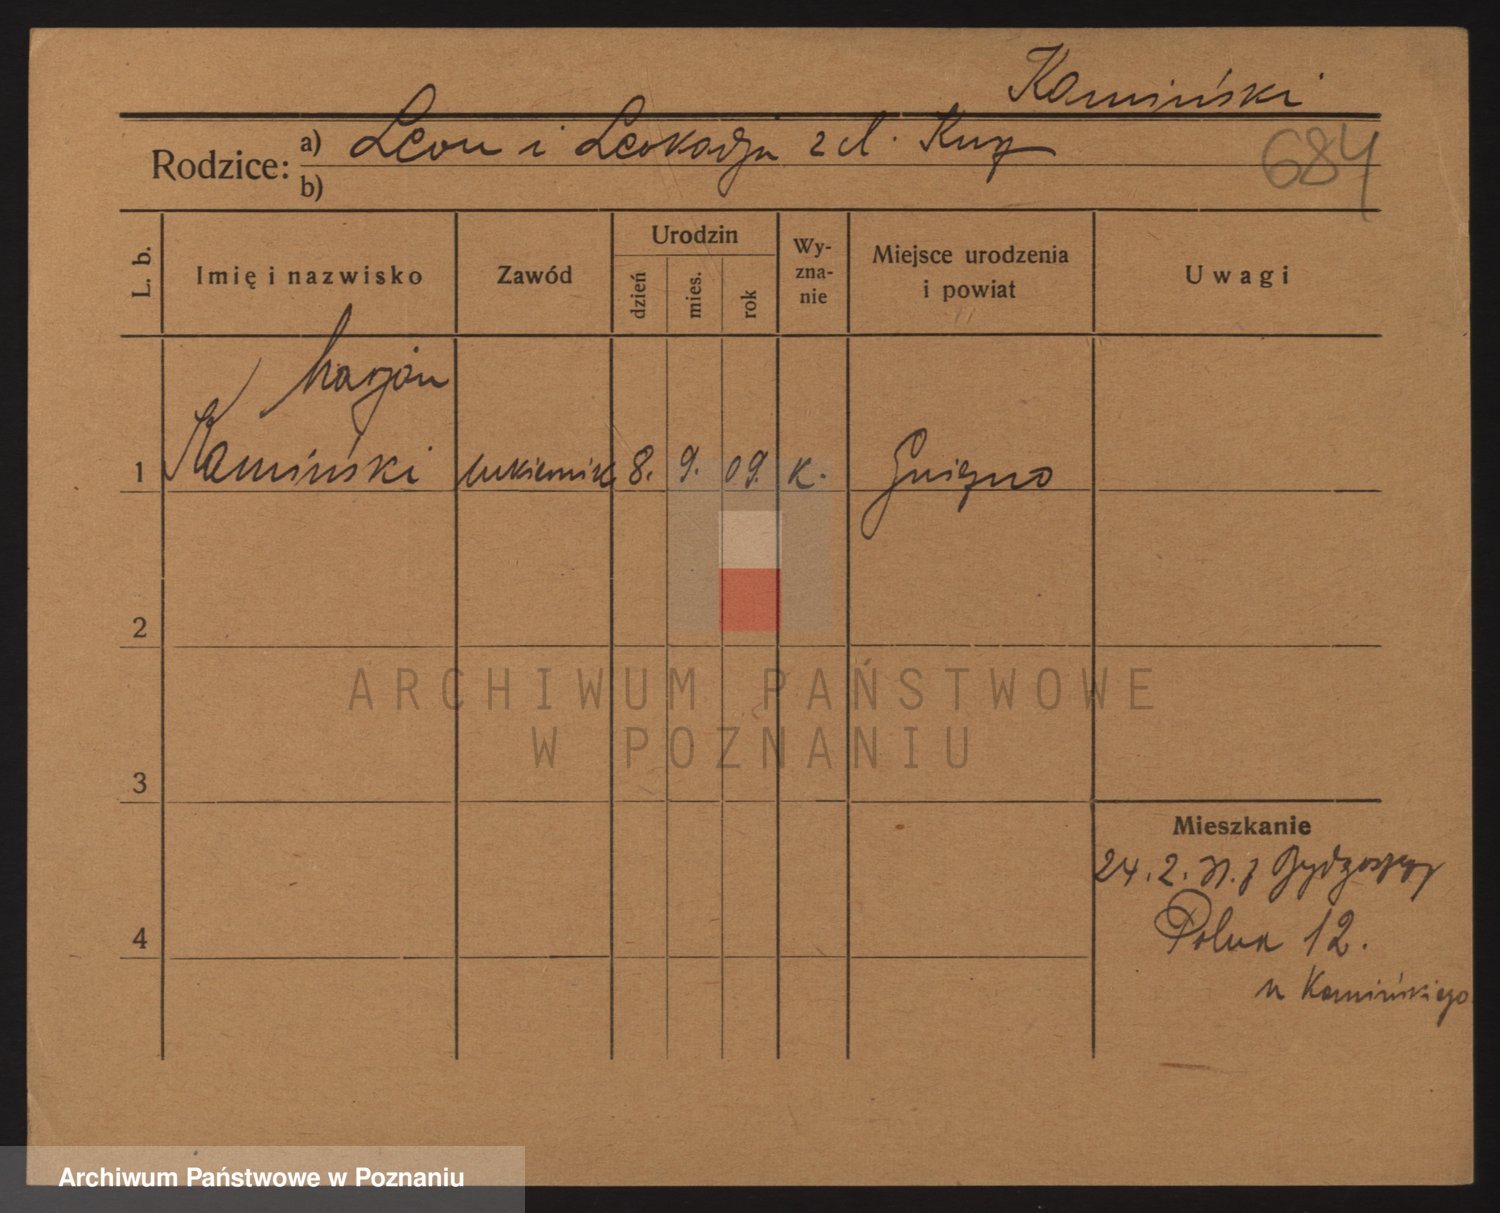 Kamiński
Rodzice: a) Leon i Leokadja z d.
b)
684
L. b.
Imię i nazwisko
Zawód
Urodzin
dzień
mies.
rok
Wy-
zna-
nie
Miejsce urodzenia
i powiat
Uwagi
Marjan
1 Kamiński cukiernik 8. 9. 09. k. Gniezno
2
3
4
Mieszkanie
24. 2. 31. z Bydgoszczy
Polna 12.
u Kamińskiego
ARCHIWUM PAŃSTWOWE
W POZNANIU
Archiwum Państwowe w Poznaniu